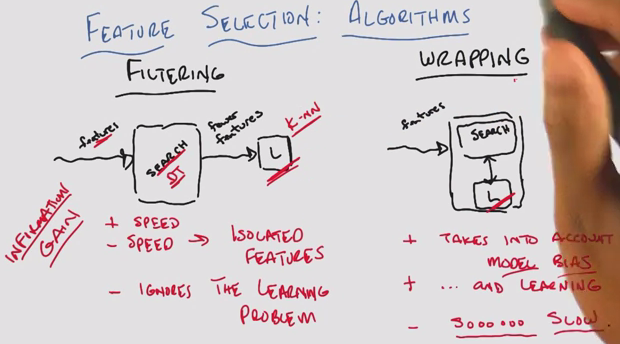 FEATURE SELECTION: ALGORITHMS
FILTERING
features
SEARCH
DT
fewer
features
L
K-NN
INFORMATION
GAIN
+ SPEED
- SPEED → ISOLATED
FEATURES
- IGNORES THE LEARNING
PROBLEM
WRAPPING
features
SEARCH
L
+ TAKES INTO ACCOUNT
MODEL BIAS
+ ... AND LEARNING
- SOOOOOOO SLOW.